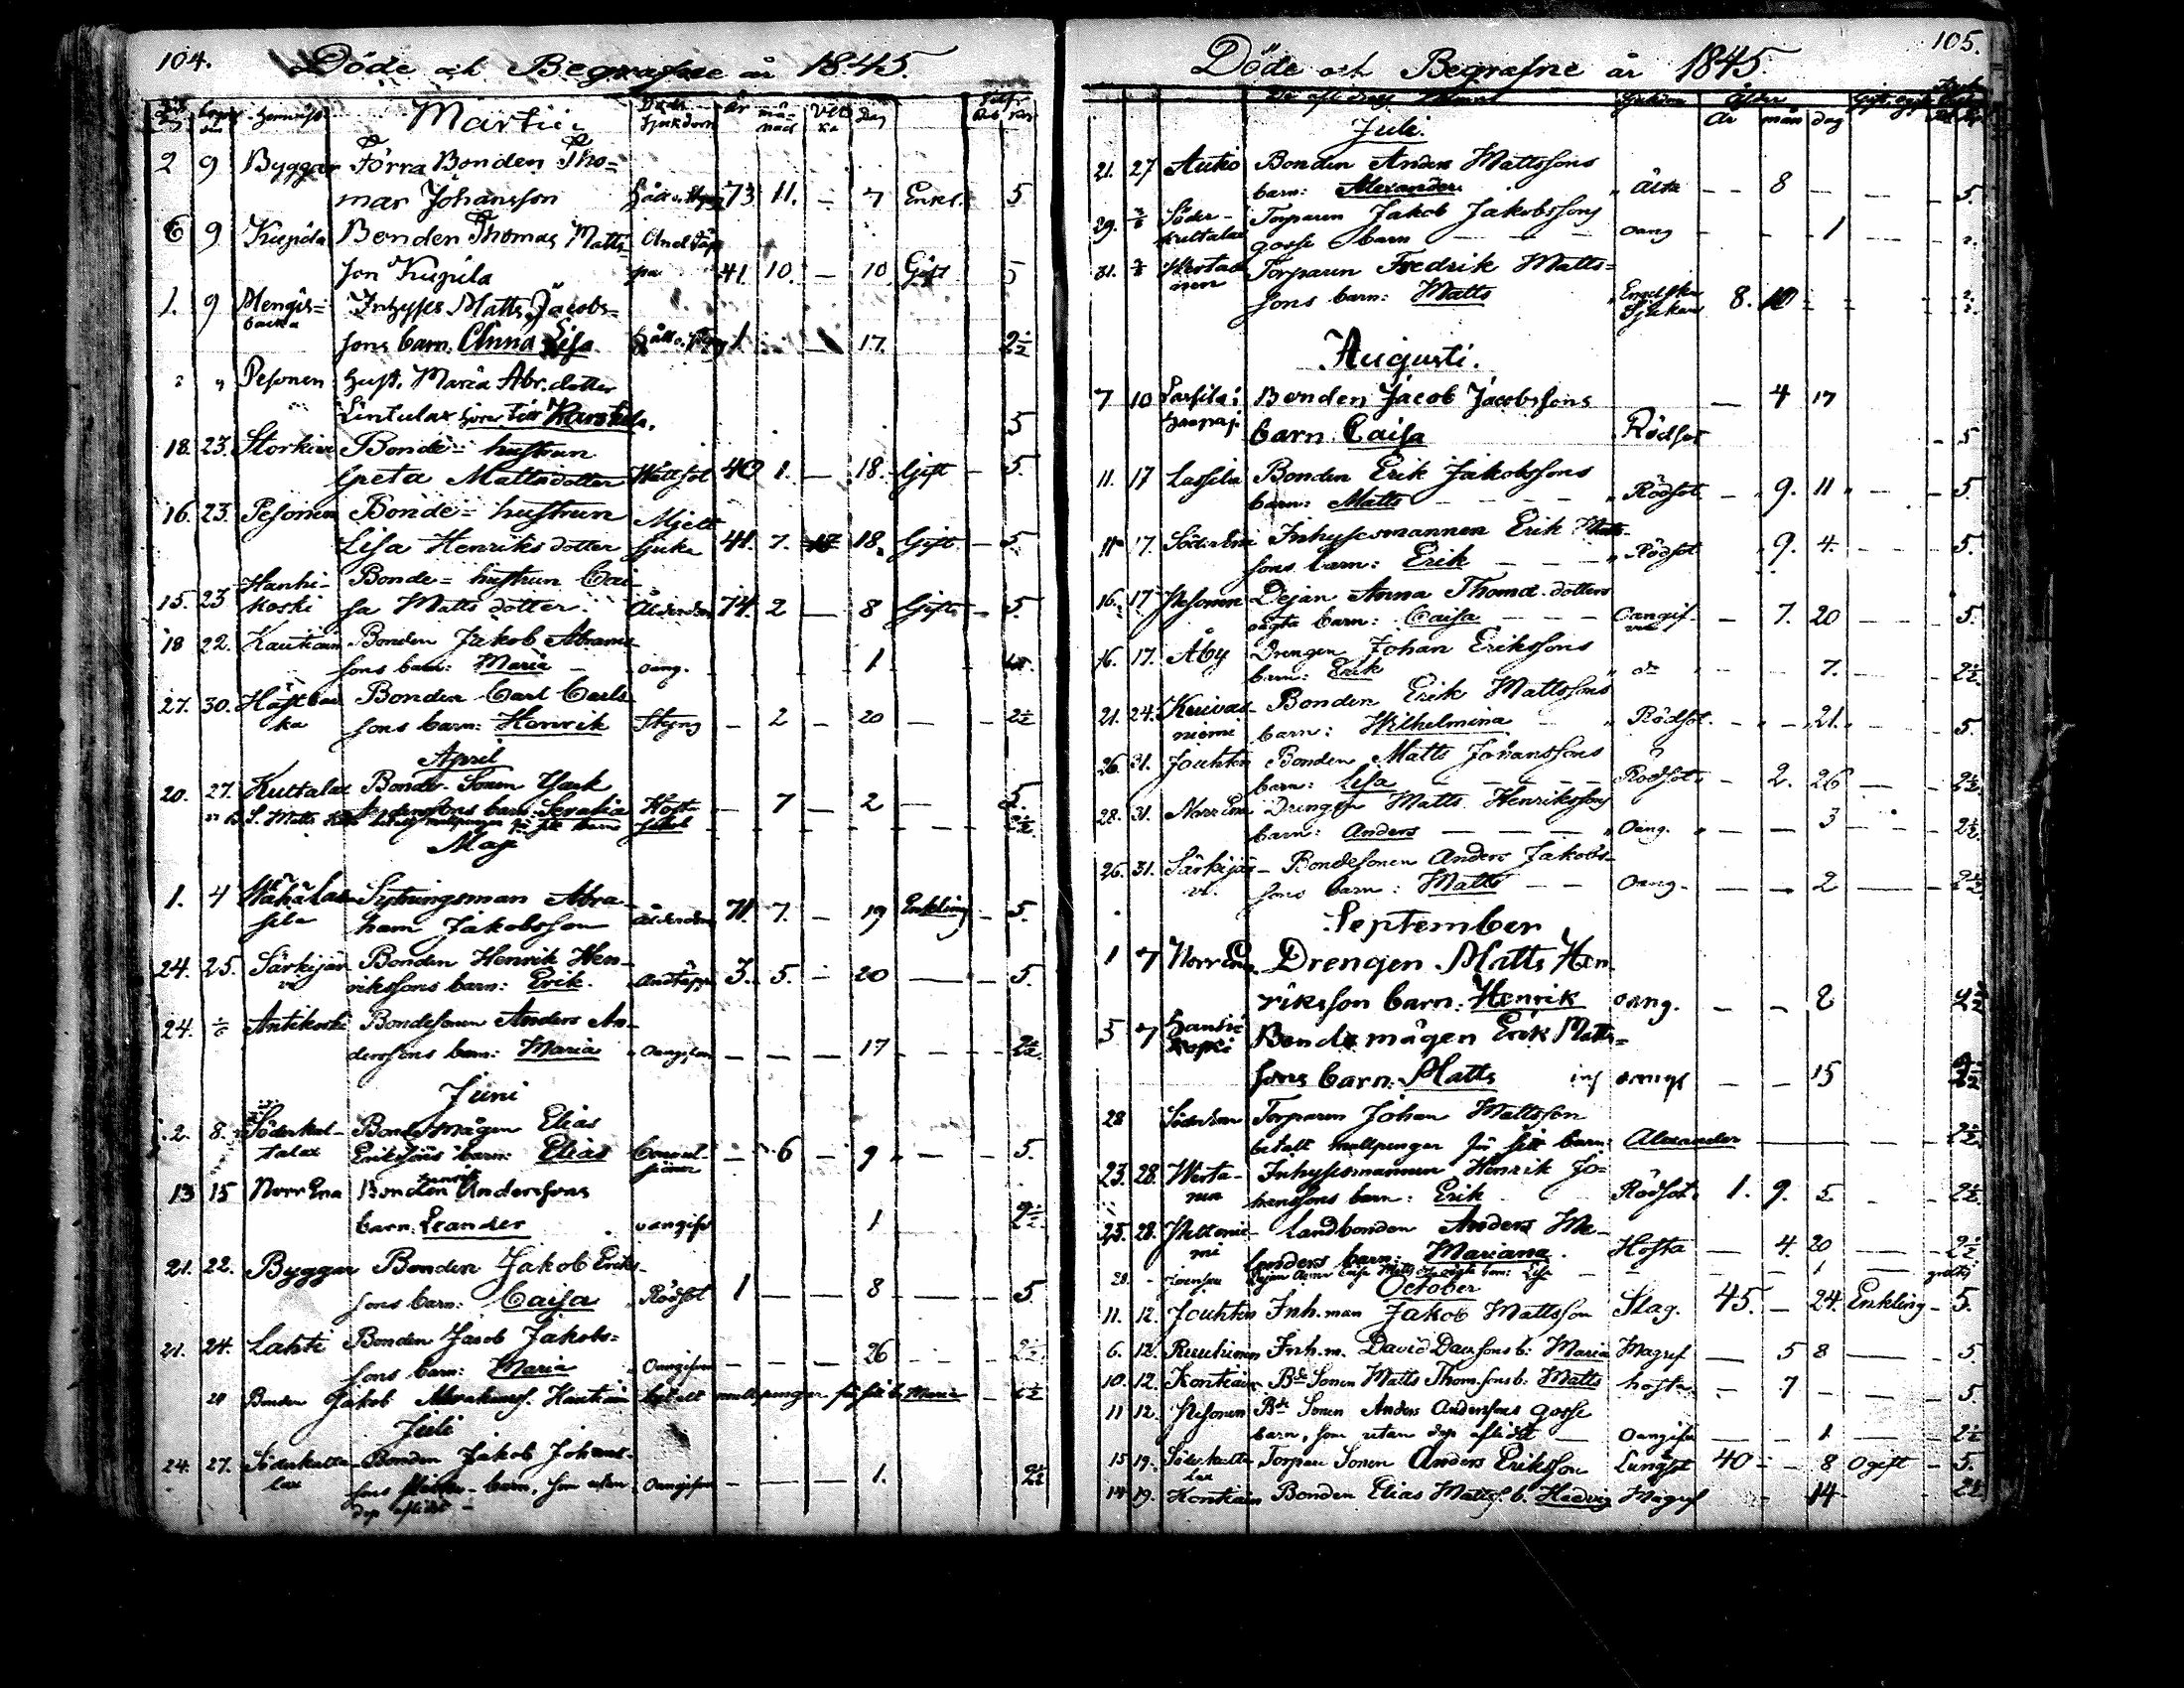 104.
Döde och Begrafne år 1845.
Martii
år månad Dag
2 9 Byggar Förra Bonden Tho=
mas Johansson Håll o. Styng 73 11. — 7 Enkl. 5
6 9 Kujula Bonden Thomas Matts Andtäp
son Kujula pa 41. 10. — 10 Gift 5
1. 9 Mengis= Inhyses Matts Jacobs=
backa sons barn. Anna Lisa Håll o. Styng 1. — 17. 2½
Pesonen Hust. Maria Abr. dotter
Lintulax hörer till Karstula. 5
18. 23. Bonde= hustrun
Greta Mattsdotter Wattsot 40 1. — 18. Gift — 5.
16. 23. Pesonen Bonde= hustrun Mjelt
Lisa Henriksdotter sjuka 41. 7. 18. Gift — 5.
Hanhi- Bonde= hustrun Cai-
15. 23 koski sa Mattsdotter. Ålderdom 74. 2 — 8 Gift — 5.
18 22. Kautiain Bonden Jakob Abrams
sons barn: Maria — oang. 1
27. 30. Häst bac Bonden Carl Carls
ka sons barn: Henrik Styng — 2 — 20 — 2½
April
20. 27. Kultalax Bonde Sonen Isack
Anderssons barn: Serafia Host — 7 — 2 — 5.
Maji
1. 4 Wähä Las Sytningsman Abra-
sila ham Jakobsson Ålderdom 71. 7. — 19 Enkling — 5.
24. 25. Särkijär Bonden Henrik Hen-
vi rikssons barn: Erik. Andtäppa 3. 5. — 20 — 5.
24. Antikoski Bondesonen Anders An-
derssons barn: Maria Oangifven — — — 17 — — 2½
Juni
2. 8. Söderkul- Bondemågen Elias
talax Erikssons barn: Elias — 6 — 9 — — 5.
13 15 Norr Ena Bonden Henrik Anderssons
barn. Leander oangifv 1 2½
21. 22. Byggar Bonden Jakob Eriks-
sons barn: Caisa Rödsot 1 — — 8 — — 5
21. 24. Lahti Bonden Jacob Jakobs=
sons barn: Maria Oangifven — — — 26 — — 2½
Bonden Jakob Abrahams. Kautiain betalt mullpengar för sitt b. Maria — 2½
Juli
24. 27. Söderkulta- Bonden Jakob Johans-
lax sons barn, som utan Oangifven — — — 1. 2½
dop aflidit —
105.
Döde och Begrafne år 1845.
Ålder
År mån dag
Juli.
21. 27 Autio Bonden Anders Mattssons
barn: Alexander — — 8 — — 5.
29. Söder- Torparen Jakob Jakobssons
kultalax gosse barn — — — oang — — 1
31. Torparen Fredrik Matts=
sons barn: Matts Engelska Sjukan 8. 10
Augusti.
7 10 Lassila i Bonden Jacob Jacobssons — 4 17
barn Caisa Rödsot — 5
11. 17 Lassila Bonden Erik Jakobssons
barn: Matts — — — Rödsot — 9. 11 — — 5.
17. Söder Ena Inhysesmannen Erik Matts-
sons barn: Erik — — Rödsot 9. 4. — — 5.
16. 17 Pesonen Dejan Anna Thomd. dotters
oägta barn: Caisa — — — Oangif- — 7. 20 — — 5.
16. 17. Åby Drengen Johan Erikssons
barn: Erik do 7. — — 2½.
21. 24. Kuivas- Bonden Erik Mattssons
niemi barn: Wilhelmina — Rödsot. — — 21. — 5.
26. 31. Jouhten Bonden Matts Johanssons
barn: Lisa — — — Rödsot — 2. 26 — — 2½.
28. 31. Norr Ena Drengen Matts Henrikssons
barn: Anders — — — Oang. — — 3 — — 2½.
26. 31. Särkijär- Bondesonen Anders Jakobs-
vi. sons barn: Matts — — Oang. — — 2 — 2½
September
1 7 Norr Ena Drengen Matts Hen-
riksson barn. Henrik oang. — — 2 2½
5 7 Hanhi Bonde mågen Erik Matts=
koski sons barn. Matts — — 15 2½
28 Söder Ena Torparen Johan Mattsson
betalt mullpengar för sitt barn Alexander 2½
23. 28. Werta- Inhysesmannen Henrik Jo=
nen hanssons barn: Erik Rödsot. 1. 9. 5 — 2½
25. 28. Landbonden Anders
barn: Mariana. Hosta — 4. 20 — 2½
28. — gratis
October
11. 12. Jouhten Inh. man Jakob Mattsson Slag. 45. — 24. Enkling — 5.
6. 12. Ruuhinen Inh. m. David Dav.sons b. Maria Magref — 5 8 — 5.
10. 12. Kontiain Bde Sonen Matts Thom.sons b. Matts hosta — 7 — — 5.
11 12. Pesonen Bde Sonen Anders Anderssons gosse
barn, som utan dop aflidit — Oangifv — — 1 — 2½
15 19. Söderkulta- Torpare Sonen Anders Eriksson Lungsot 40 — — 8 Ogift — 5.
lax
14 19. Kontiain Bonden Elias Matts. b. Hedvig Magref 14 — 2½